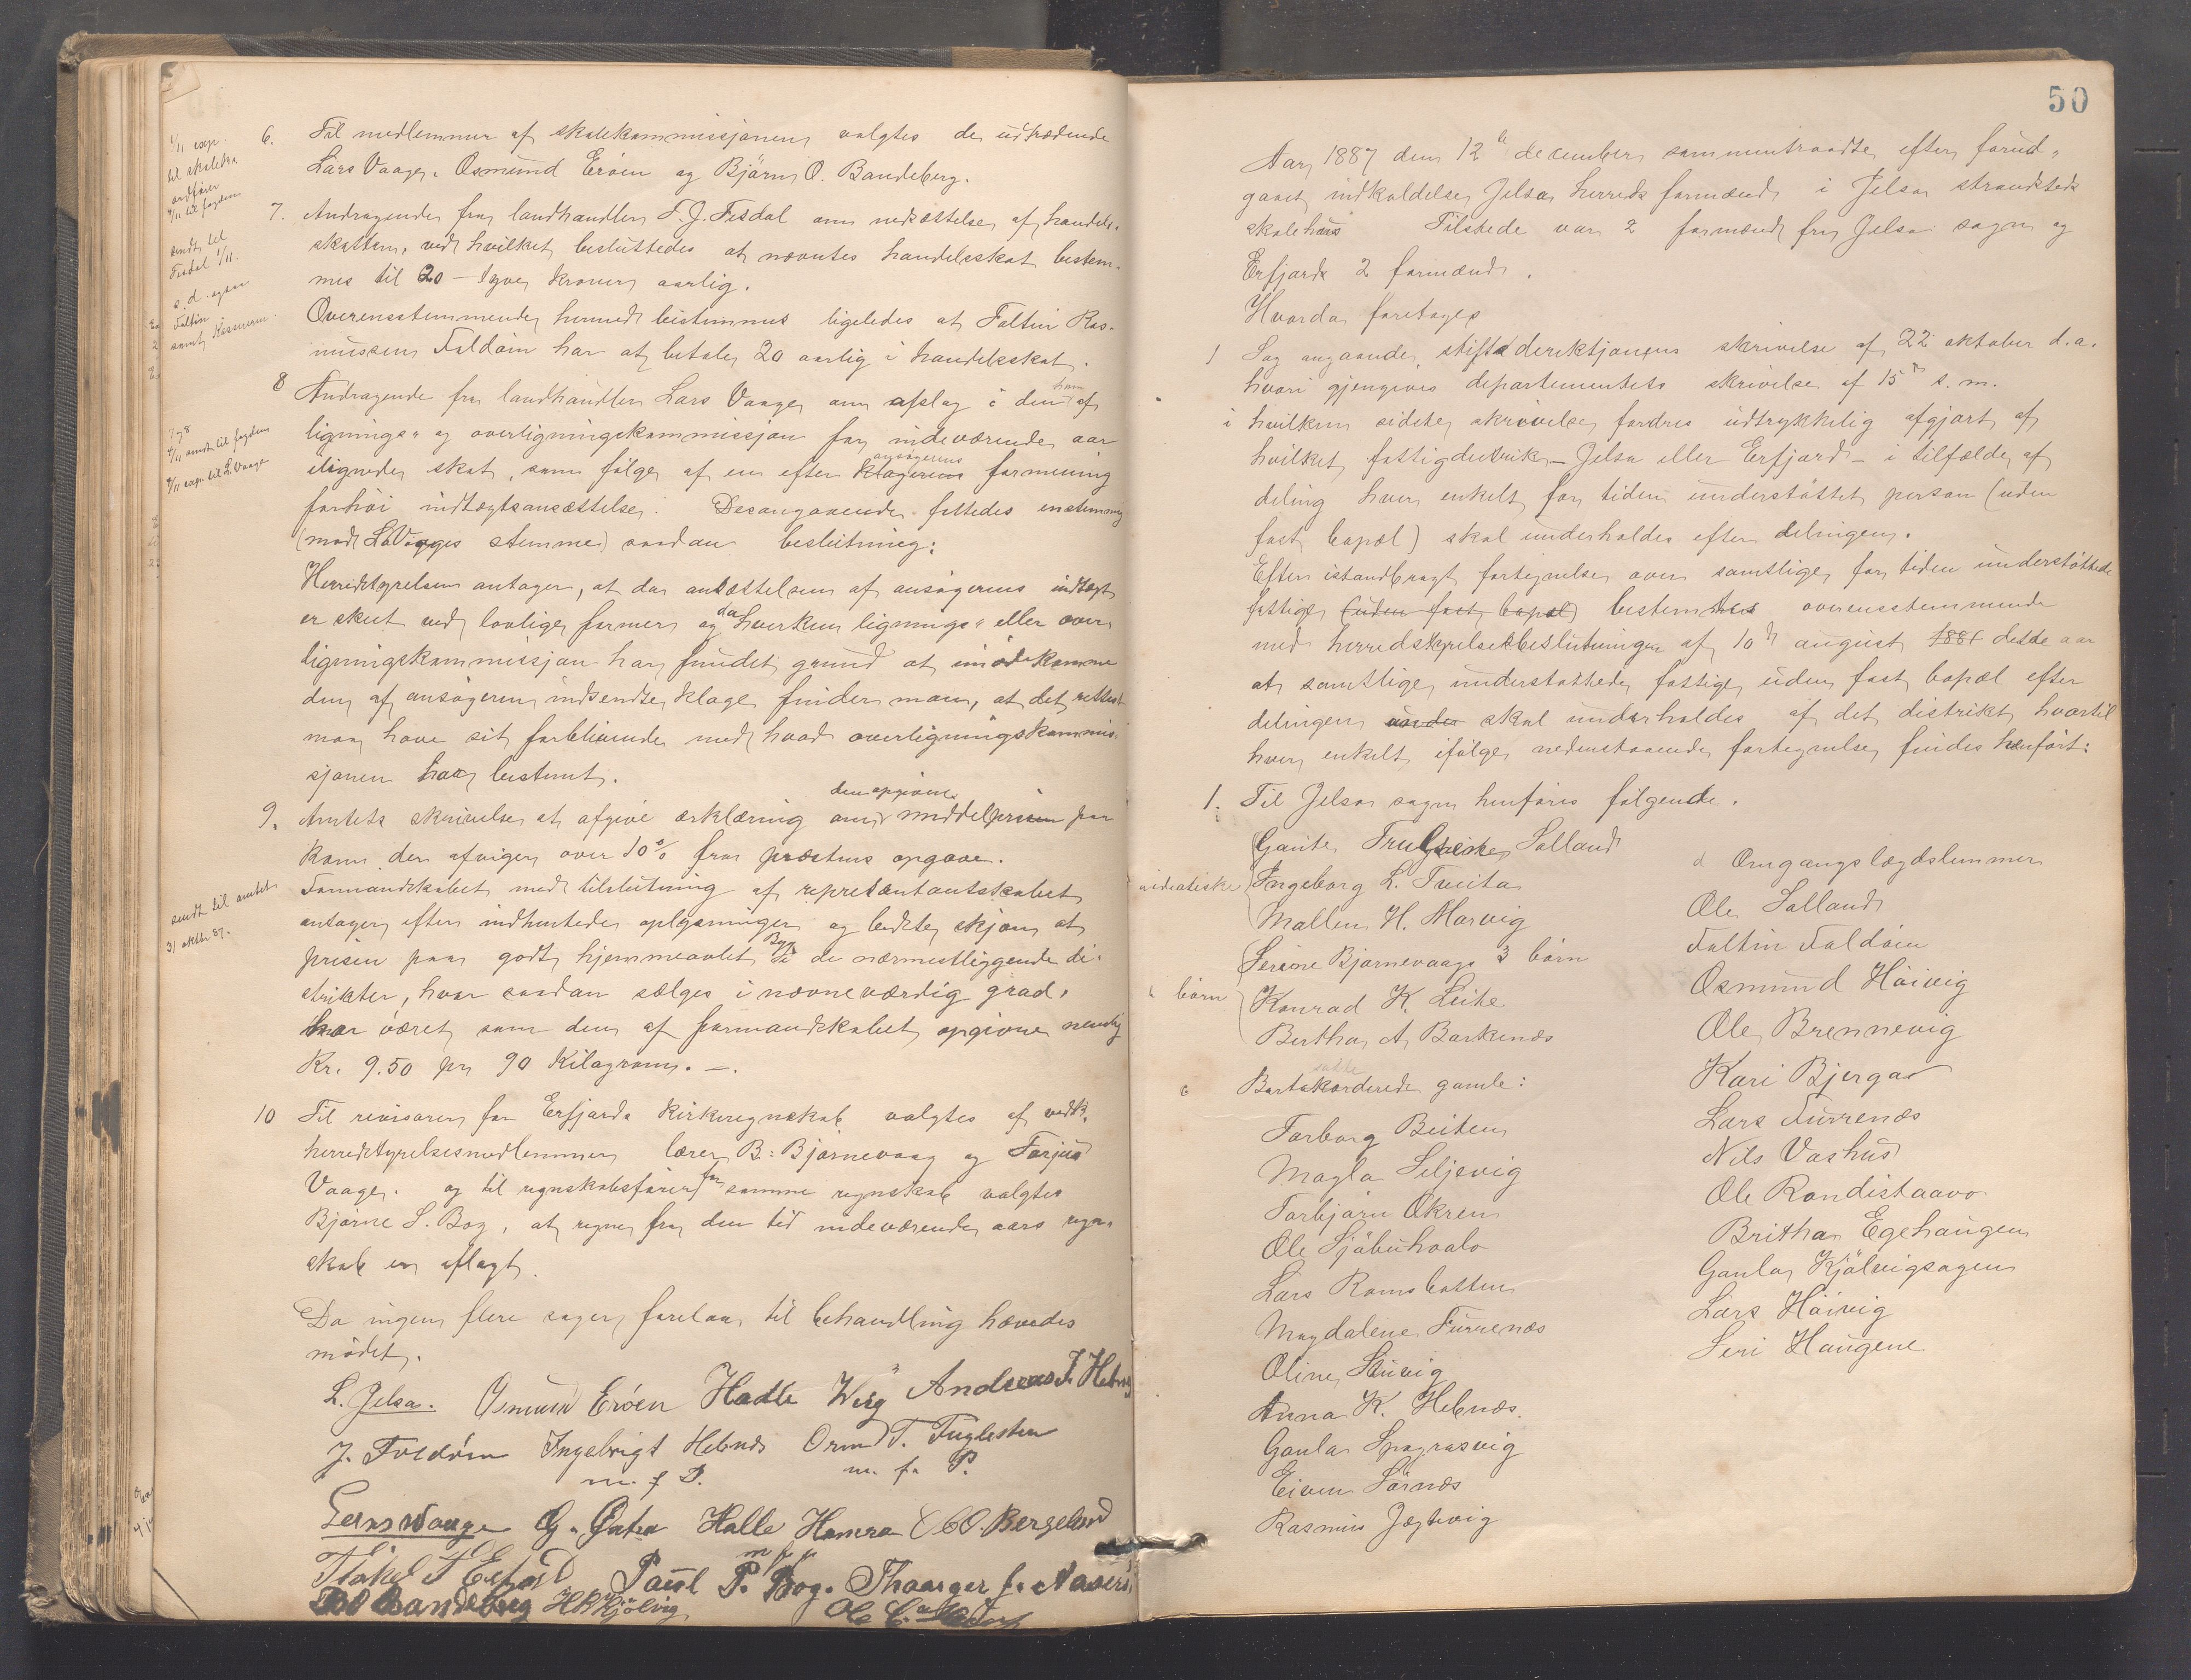 6. Til medlemmer af skolekommissjonen valgtes de udtrædende
Lars Vaage, Osmund Eröen og Björn O. Bandeberg.
7. Andragende fra landhandler T. J. Fisdal om nedsættelse af handels-
skatten, ved hvilket besluttedes at nævntes handelsskat bestem-
mes til 20 – tyve kroner aarlig.
Overensstemmende hermed bestemmes ligeledes at Faltin Ras-
mussen Foldöin har at betale 20 aarlig i handelsskat.
8 Andragende fra landhandler Lars Vaage om afslag i den ham af
lignings- og overligningskommissjon for indeværende aar
ilignede skat, som fölge af en efter klagerens ansögerens formening
forhöi indtægtsansættelse. Desangaaende fattedes enstemmig
(mod L. Vaages stemme) saadan beslutning:
Herredstyrelsen antager, at da ansættelsen af ansögerens indtægt
er skeet ved lovlige former og da hverken lignings- eller over-
ligningskommissjon har fundet grund at imödekomme
den af ansögeren indsendte klage finder man, at det rettest
maa have sit forblivende med hvad overligningskommis-
sjonen har bestemt.
9. Amtets skrivelse at afgive erklæring om den opgivne middelprisen paa
korn der afviger over 10% fra præstens opgave.
Formandskabet med tilslutning af repræsentantskabet
antager efter indhentede oplysninger og bedste skjön at
prisen paa godt hjemmeavlet Byg i de nærmestliggende di-
strikter, hvor saadan sælges i nævneværdig grad,
har været som den af formandskabet opgivne nemlig
Kr. 9.50 pr 90 Kilogram. —.
10 Til revisorer for Erfjords kirkeregnskab valgtes af vedk.
herredstyrelsesmedlemmer lærer B. Bjørnevaag og Torjus
Vaage. og til regnskabsförer for samme regnskab valgtes
Bjarne S. Bog, at regne fra den tid indeværende aars regn-
skab er aflagt.
Da ingen flere sager forelaa til behandling hævedes
mödet.
L. Jelsa. Osmund Eröen Hadle Andreas J. Hebnes
J. Foldöin Ingebrigt Hebnes Orm T. Fuglesten
m. f. P. m. f. P.
Lars Waage G. Halle Hamra C O. Bergeland
Paul P. Bog.
Bandeberg H R Kjölvig
sendt til amtet
31 oktbr 87.
50
Aar 1887 den 12te december sammentraadte efter forud-
gaaet indkaldelse Jelsa herreds formænd i Jelsa strandsteds
skolehus Tilstede var 2 formænd fra Jelsa sogn og
Erfjords 2 formænd.
Hvorda foretoges
1 Sag angaaende stiftsdirektjonens skrivelse af 22 oktober d.a.
hvori gjengives departementets skrivelse af 15de s.m.
i hvilken sidste skrivelse fordres udtrykkelig afgjort af
hvilket fattigdistrikt – Jelsa eller Erfjord – i tilfælde af
deling hver enkelt for tiden understöttet person (uden
fast bopæl) skal underholdes efter delingen.
Efter istandbragt fortegnelse over samtlige for tiden understöttede
fattige (uden fast bopæl) bestemtes overensstemmende
med herredstyrelsesbeslutningen af 10de august 1881 dette aar
at samtlige understöttede fattige uden fast bopæl efter
delingen skal underholdes af det distrikt hvortil
hver enkelt ifölge nedenstaaende fortegnelse findes henfört:
1. Til Jelsa sogn henföres fölgende.
Gaute Trulssen Solland
Ingeborg L. Tveita
Mallen H. Marvig
Serine Bjørnevaags 3 börn
börn Konrad K. Leite
Bertha A. Barkenæs
c Bortakkorderede gamle:
Torborg Beiten
Magla Seljevig
Torbjörn Økren
Ole Sjöbuhaalo
Lars Ramsbotten
Magdalene Furrenæs
Oline
Anna K. Hebnæs.
Gaula
Eiven Sörnæs
Rasmus Jægtevig
d Omgangslægdslemmer
Ole Solland
Faltin Foldöin
Osmund Höivig
Ole Brennevig
Kari Bjerga
Lars Furrenæs
Nils Vashus
Ole Rondistaavo
Britha Egehaugen
Gaula Kjölvigsagen
Lars Höivig
Seri Haugene